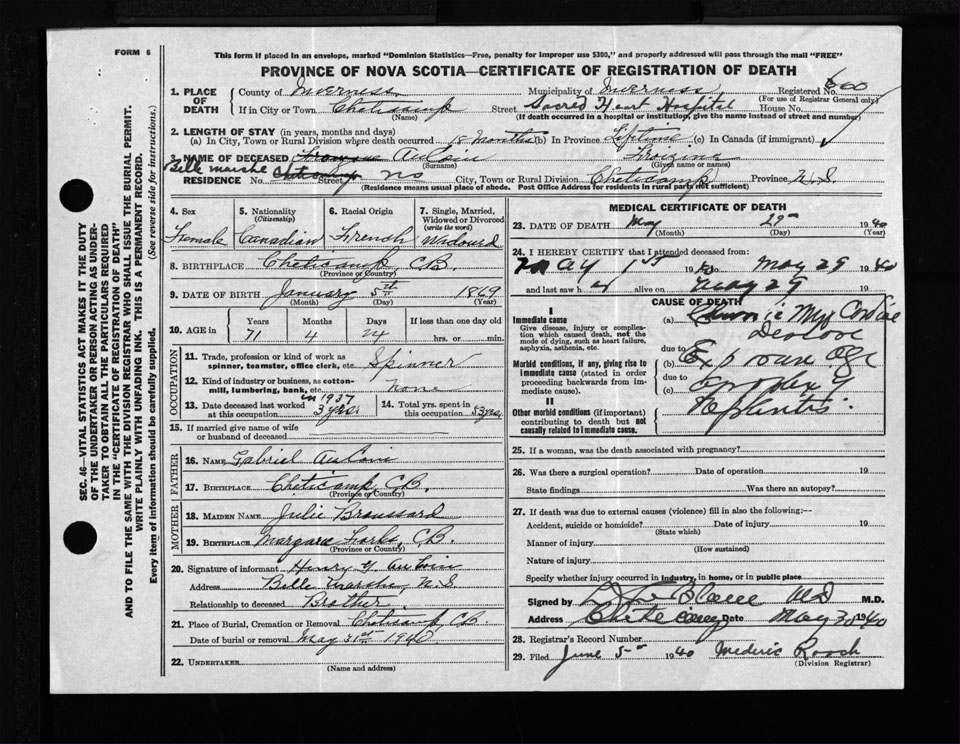 FORM 6
This form if placed in an envelope, marked "Dominion Statistics—Free, penalty for improper use $300," and properly addressed will pass through the mail "FREE"
PROVINCE OF NOVA SCOTIA—CERTIFICATE OF REGISTRATION OF DEATH
SEC. 46—VITAL STATISTICS ACT MAKES IT THE DUTY
OF THE UNDERTAKER OR PERSON ACTING AS UNDER-
TAKER TO OBTAIN ALL THE PARTICULARS REQUIRED
IN THE "CERTIFICATE OF REGISTRATION OF DEATH"
AND TO FILE THE SAME WITH THE DIVISION REGISTRAR WHO SHALL ISSUE THE BURIAL PERMIT.
WRITE PLAINLY WITH UNFADING INK. THIS IS A PERMANENT RECORD.
Every item of information should be carefully supplied. (See reverse side for instructions.)
1. PLACE OF DEATH County of Inverness Municipality of Inverness Registered No. 600
(For use of Registrar General only)
If in City or Town Cheticamp Street Sacred Heart Hospital House No.
(Name) (If death occurred in a hospital or institution, give the name instead of street and number)
2. LENGTH OF STAY (in years, months and days)
(a) In City, Town or Rural Division where death occurred 18 months (b) In Province Lifetime (c) In Canada (if immigrant)
3. NAME OF DECEASED AuCoin
(Surname) (Given name or names)
Belle Marshe
RESIDENCE No. Street No City, Town or Rural Division Cheticamp Province N.S.
(Residence means usual place of abode. Post Office Address for residents in rural parts not sufficient)
4. Sex Female
5. Nationality (Citizenship) Canadian
6. Racial Origin French
7. Single, Married, Widowed or Divorced (write the word) Widowed
8. BIRTHPLACE Cheticamp C.B.
(Province or Country)
9. DATE OF BIRTH January 5th 1869
(Month) (Day) (Year)
10. AGE IN Years 71 Months 4 Days 24 If less than one day old hrs. or min.
OCCUPATION
11. Trade, profession or kind of work as spinner, teamster, office clerk, etc. Spinner
12. Kind of industry or business, as cotton-mill, lumbering, bank, etc. none
13. Date deceased last worked at this occupation in 1937 3 yrs.
14. Total yrs. spent in this occupation 53 yrs
15. If married give name of wife or husband of deceased
FATHER
16. NAME Gabriel AuCoin
17. BIRTHPLACE Cheticamp, C.B.
(Province or Country)
MOTHER
18. MAIDEN NAME Julie Broussard
19. BIRTHPLACE Margaree Forks, C.B.
(Province or Country)
20. Signature of informant Henry Y AuCoin
Address Belle Marshe, N.S
Relationship to deceased Brother
21. Place of Burial, Cremation or Removal Cheticamp C.B.
Date of burial or removal May 31st 1940
22. UNDERTAKER
(Name and address)
MEDICAL CERTIFICATE OF DEATH
23. DATE OF DEATH May 29 1940
(Month) (Day) (Year)
24. I HEREBY CERTIFY that I attended deceased from:
May 1st 1940 to May 29 1940
and last saw h alive on May 29 19
CAUSE OF DEATH
I
Immediate cause
Give disease, injury or complication which caused death, not the mode of dying, such as heart failure, asphyxia, asthenia, etc.
(a)
due to
Morbid conditions, if any, giving rise to immediate cause (stated in order proceeding backwards from immediate cause).
(b)
due to
(c)
II
Other morbid conditions (if important) contributing to death but not causally related to immediate cause.
25. If a woman, was the death associated with pregnancy?
26. Was there a surgical operation? Date of operation 19
State findings Was there an autopsy?
27. If death was due to external causes (violence) fill in also the following:—
Accident, suicide or homicide? Date of injury 19
(State which)
Manner of injury
(How sustained)
Nature of injury
Specify whether injury occurred in industry, in home, or in public place
Signed by MD M.D.
Address Date May 30 1940
28. Registrar's Record Number
29. Filed June 5 1940 Mederic Roach
(Division Registrar)